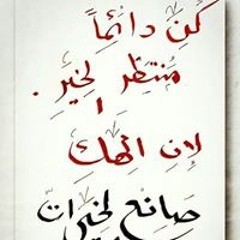 كُن دائماً
مُنتظر لخير .
لإن الهك
صانع لخيرات